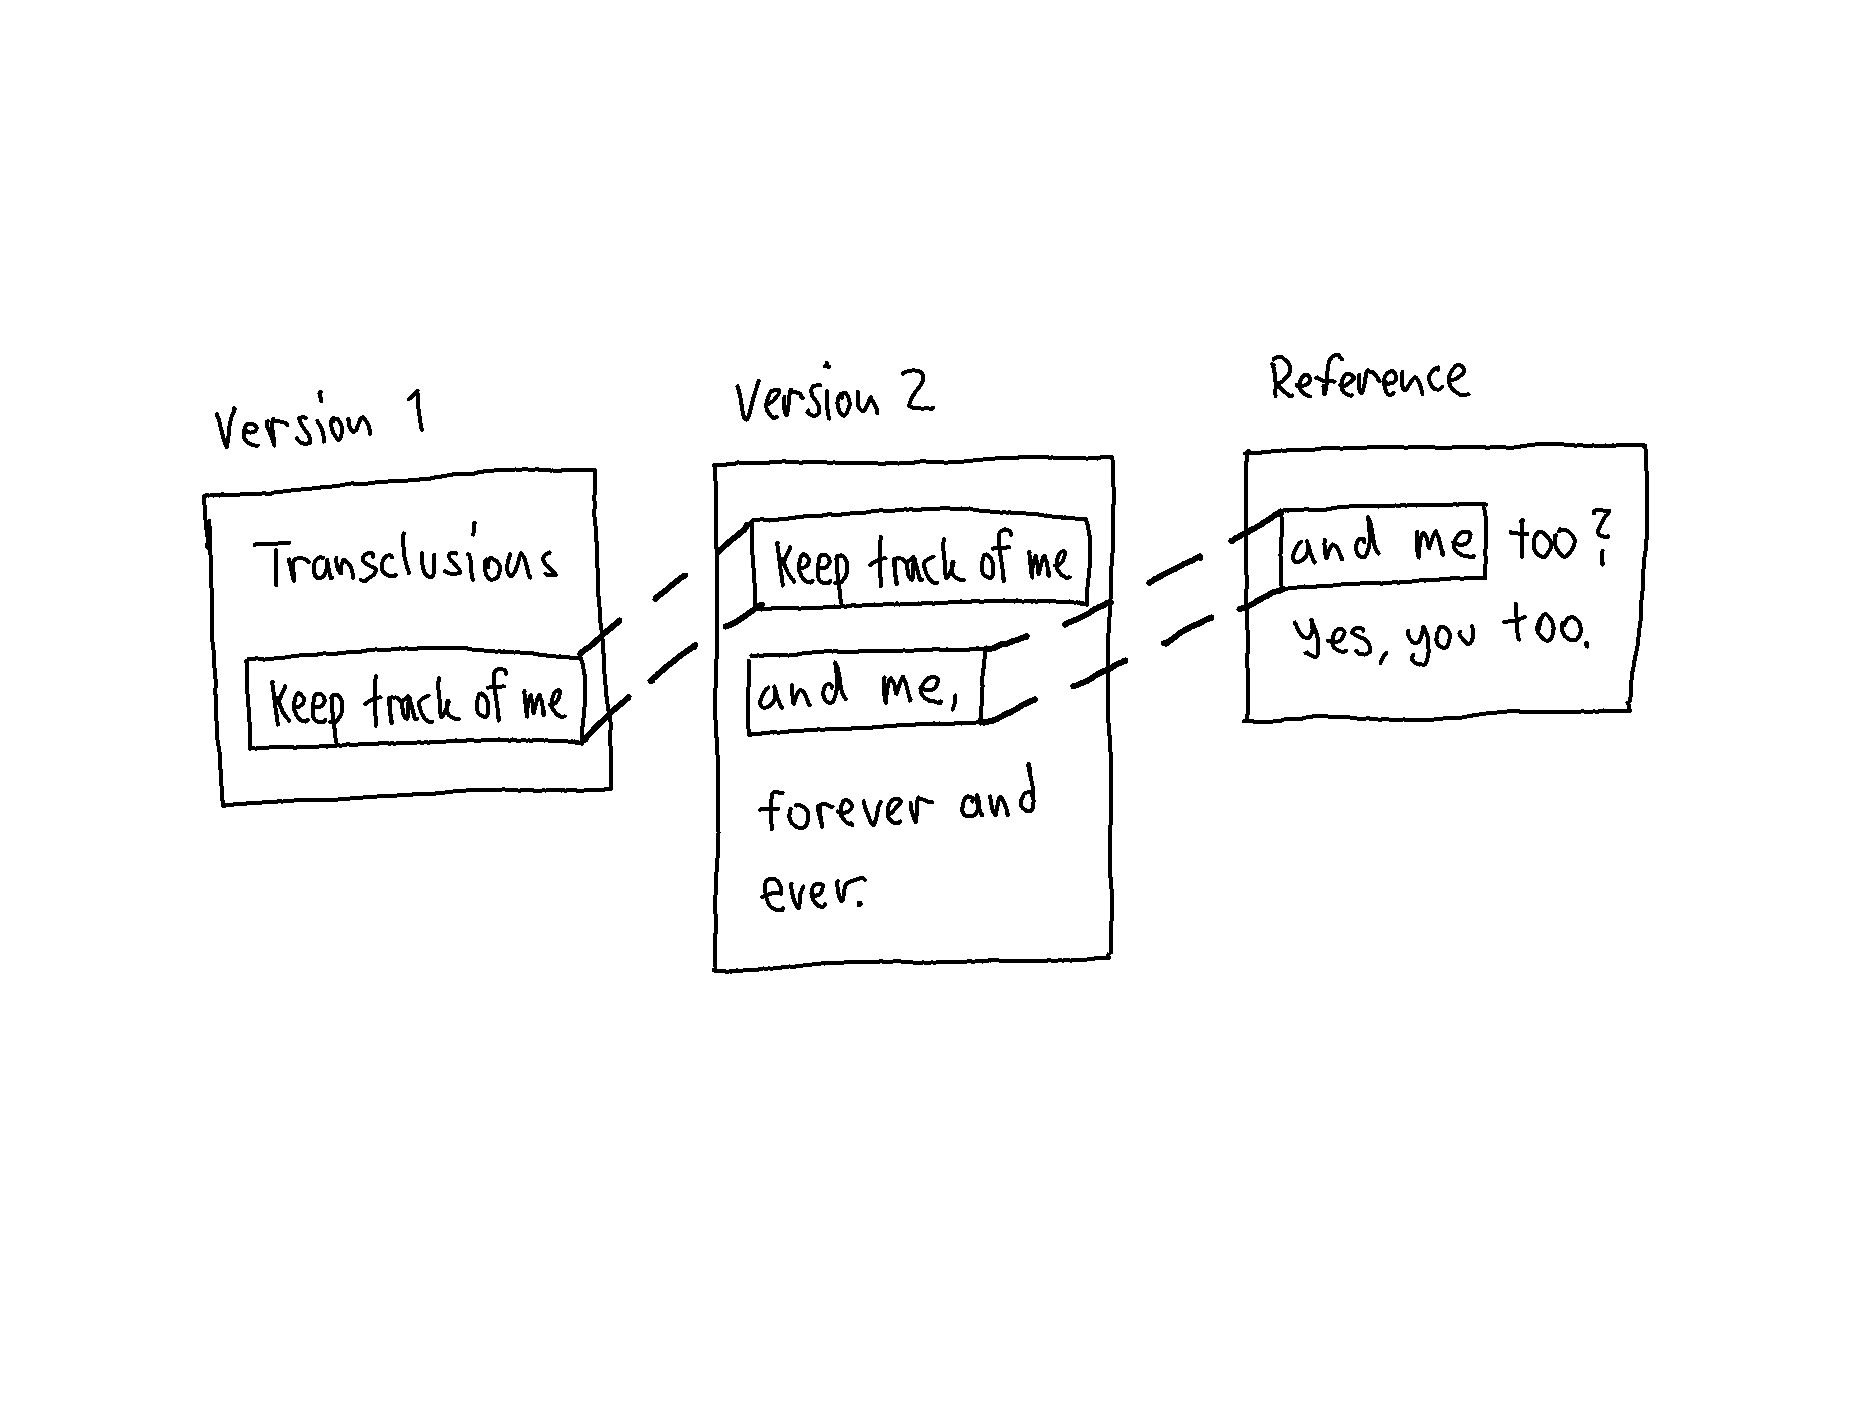 Version 1
Transclusions
keep track of me
Version 2
keep track of me
and me,
forever and
ever.
Reference
and me too?
yes, you too.